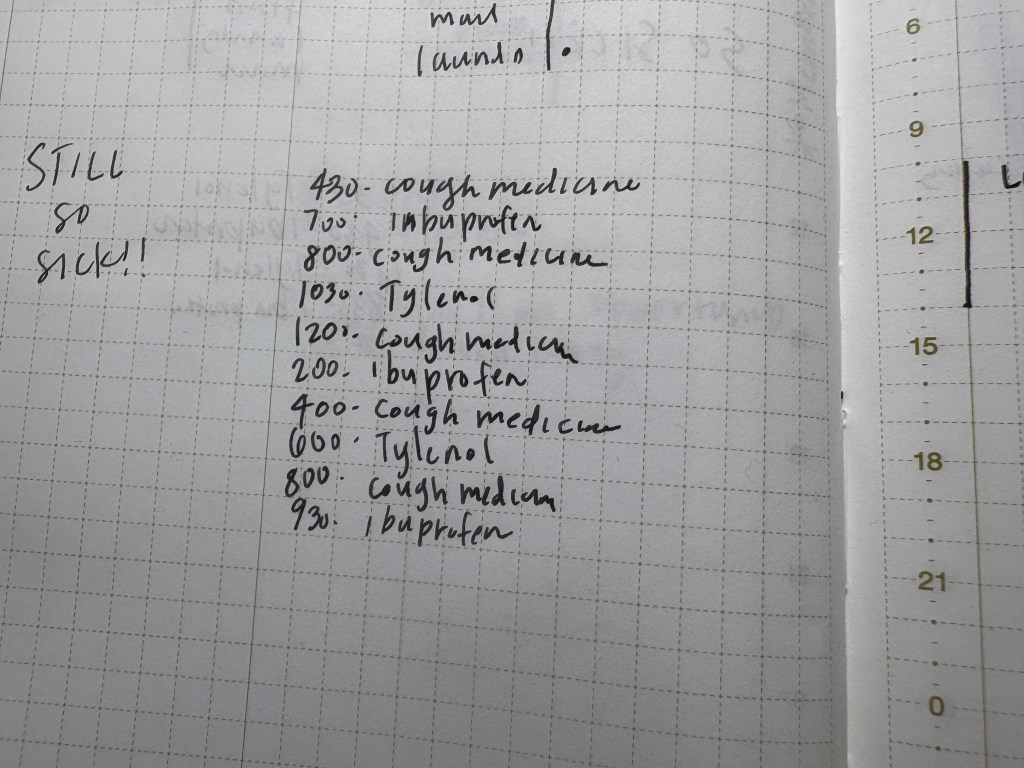 mail
laundo
STILL
so
sick!!
430- cough medicine
700- inbuprofen
800- cough medicine
1030- Tylenol
1200- cough medicine
200- ibuprofen
400- cough medicine
600- Tylenol
800- cough medicine
930- ibuprofen
6
9
12
15
18
21
0